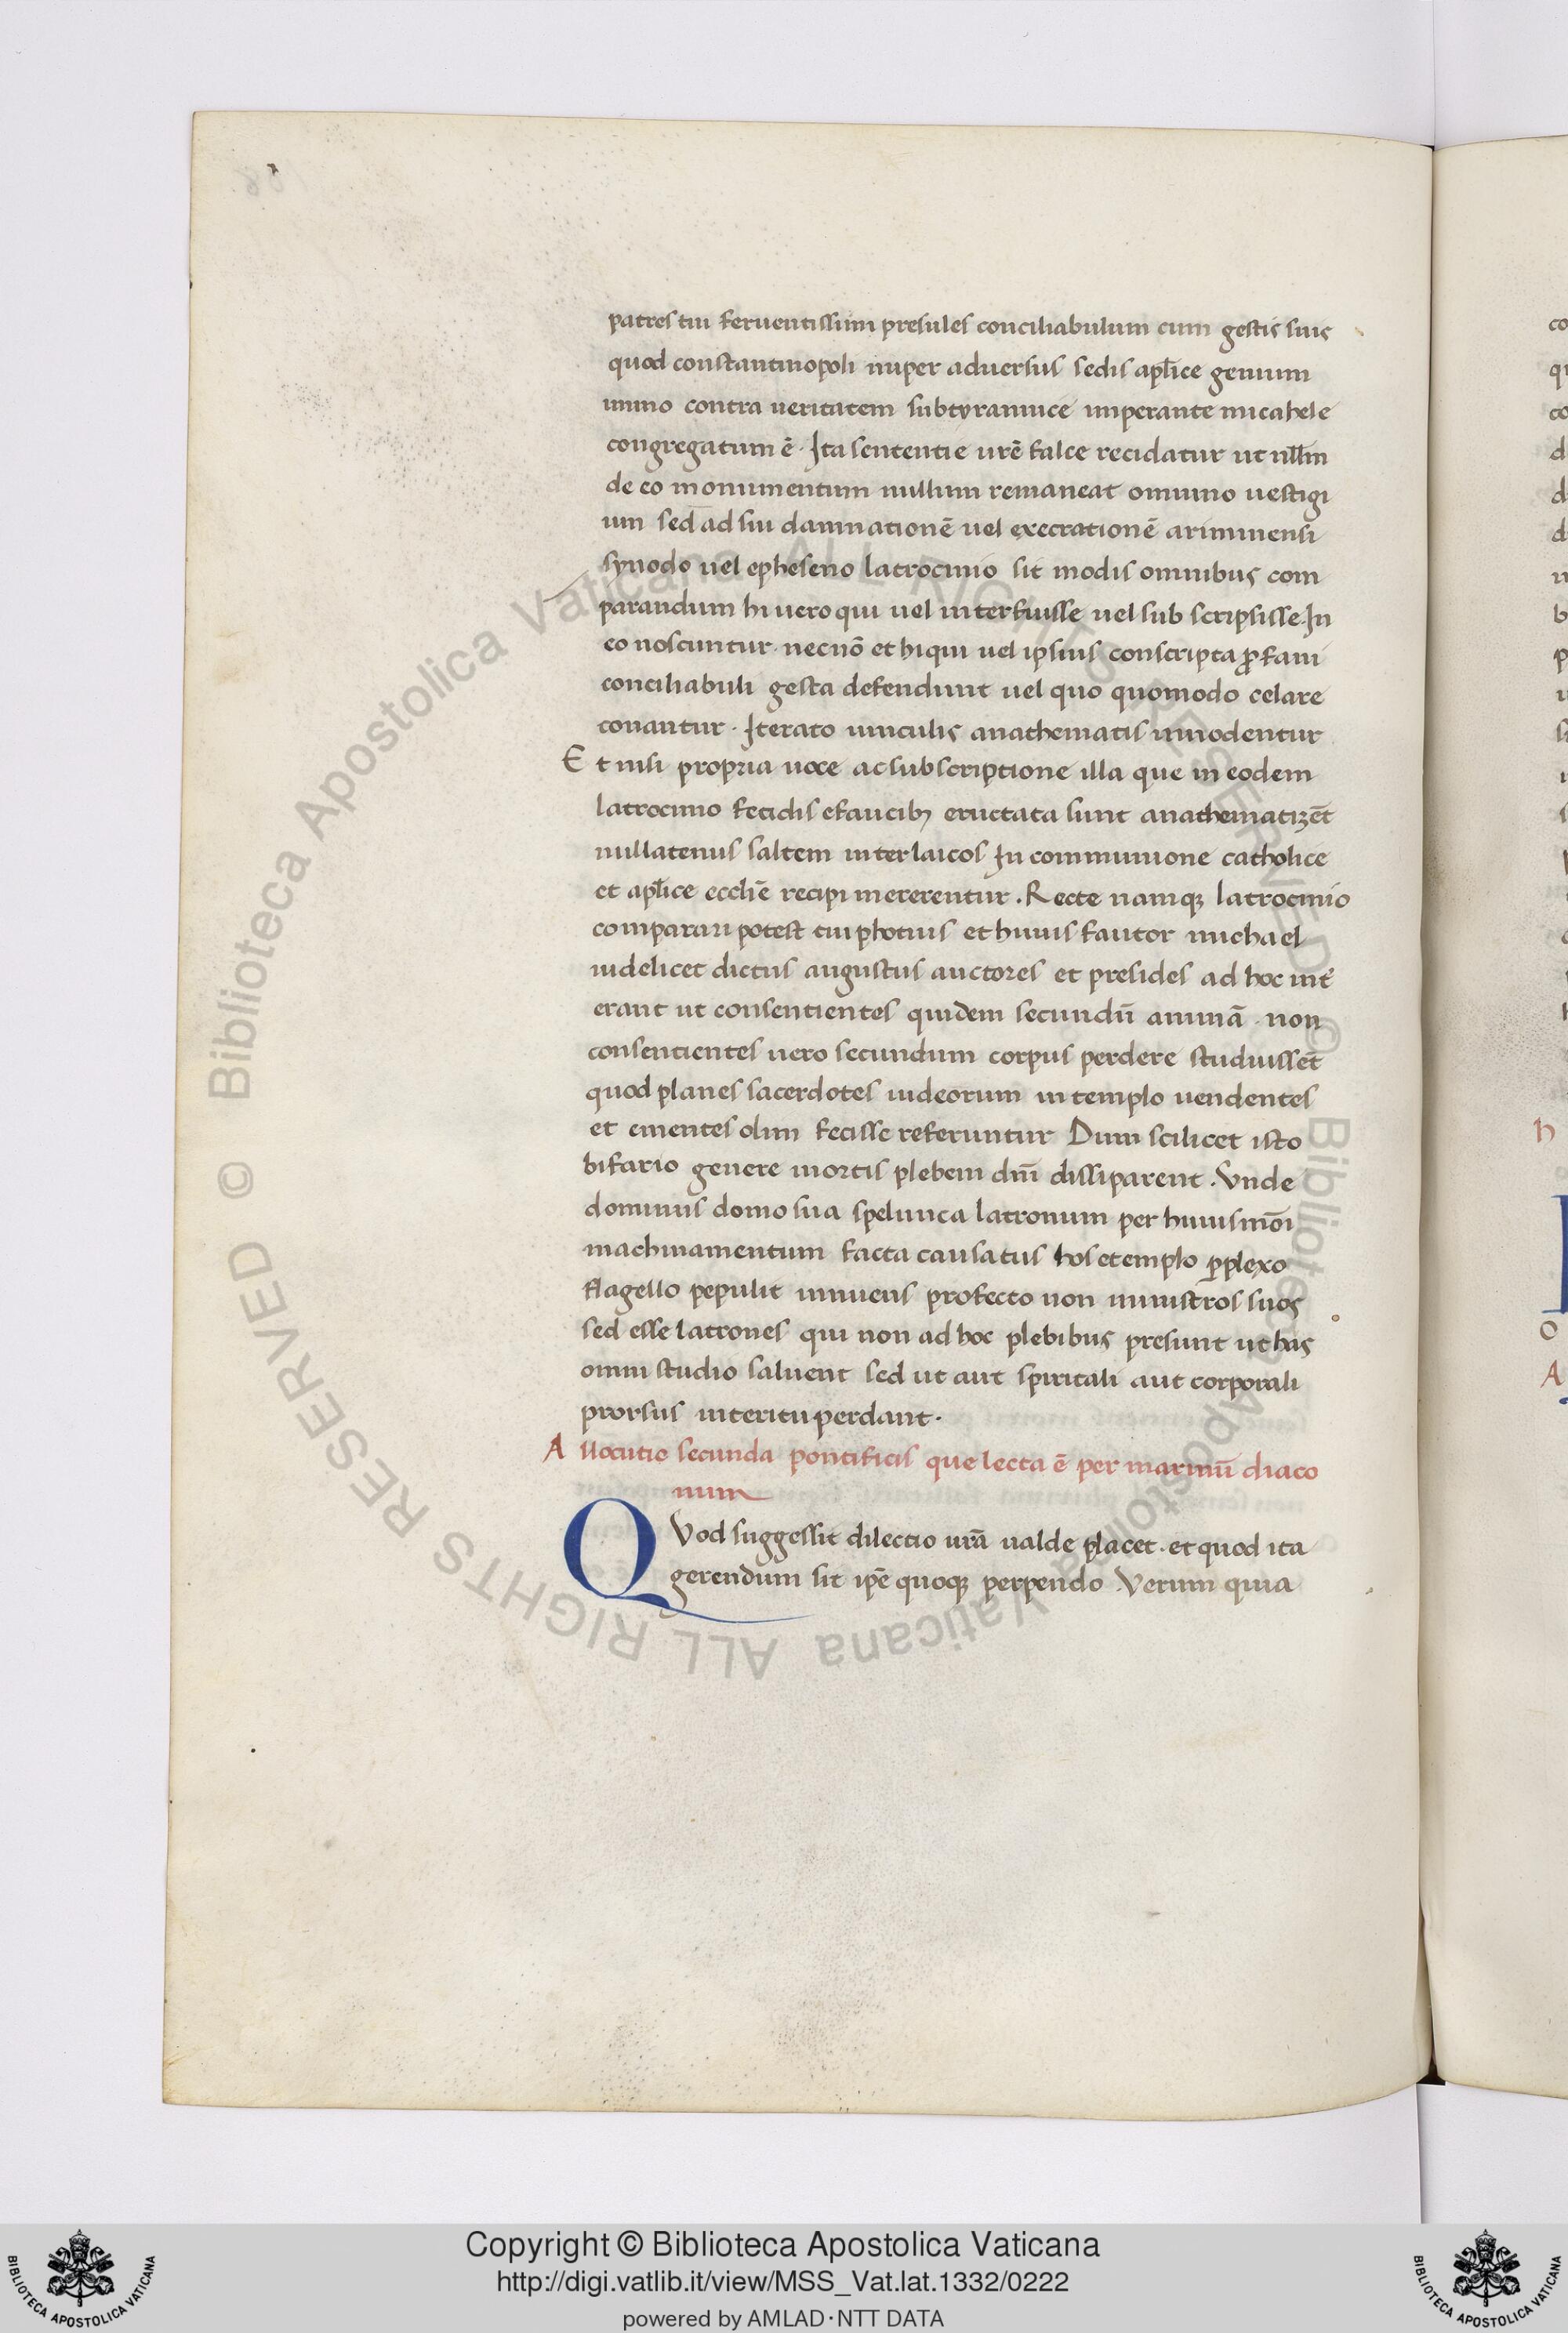 patres tui feruentissimi presules conciliabulum cum gestis suis
quod constantinopoli nuper aduersus sedis apl̄ice genium
immo contra ueritatem sub tyrannice imperante micahele
congregatum ē. Ita sententie ur̄e falce recidatur ut nll̄m
de eo monumentum nullum remaneat omnino uestigi
um sed ad sui damnationē uel execrationē ariminensi
synodo uel epheseno latrocinio sit modis omnibus com
parandum hi uero qui uel interfuisse uel sub scripsisse. In
eo noscuntur. necnō et hi qui uel ipsius conscripta ꝓfani
conciliabuli gesta defendunt uel quo quomodo celare
conantur. Iterato uinculis anathematis innodentur
Et nisi propria uoce ac subscriptione illa que in eodem
latrocinio fetidis e faucibꝫ eructata sunt anathematizēt
nullatenus saltem inter laicos In communione catholice
et apl̄ice eccl̄ie recipi mererentur. Recte namqꝫ latrocinio
comparari potest cui photius et huius fautor michael
uidelicet dictus augustus auctores et presides ad hoc int̄
erant ut consentientes quidem secundū animā. non
consentientes uero secundum corpus perdere studuissēt
quod planes sacerdotes iudeorum in templo uendentes
et ementes olim fecisse referuntur Dum scilicet isto
bifario genere mortis plebem dn̄i dissiparent. Vnde
dominus domo sua spelunca latronum per huiusmōi
machinamentum facta causatus hos e templo ꝑplexo
flagello pepulit innuens profecto non ministros suos
sed esse latrones qui non ad hoc plebibus presunt ut has
omni studio saluent sed ut aut spiritali aut corporali
prorsus interitu perdant.
Allocutio secunda pontificis que lecta ē per marinū diaco
num
QVod suggessit dilectio ur̄a ualde placet. et quod ita
gerendum sit ip̄e quoqꝫ perpendo. Verum quia
co
qu
co
d
d
d
b
p
h
O
A
© Biblioteca Apostolica Vaticana ALL RIGHTS RESERVED © Biblioteca Apostolica Vaticana ALL RIGHTS RESERVED
BIBLIOTECA APOSTOLICA VATICANA
Copyright © Biblioteca Apostolica Vaticana
http://digi.vatlib.it/view/MSS_Vat.lat.1332/0222
powered by AMLAD·NTT DATA
BIBLIOTECA APOSTOLICA VATICANA